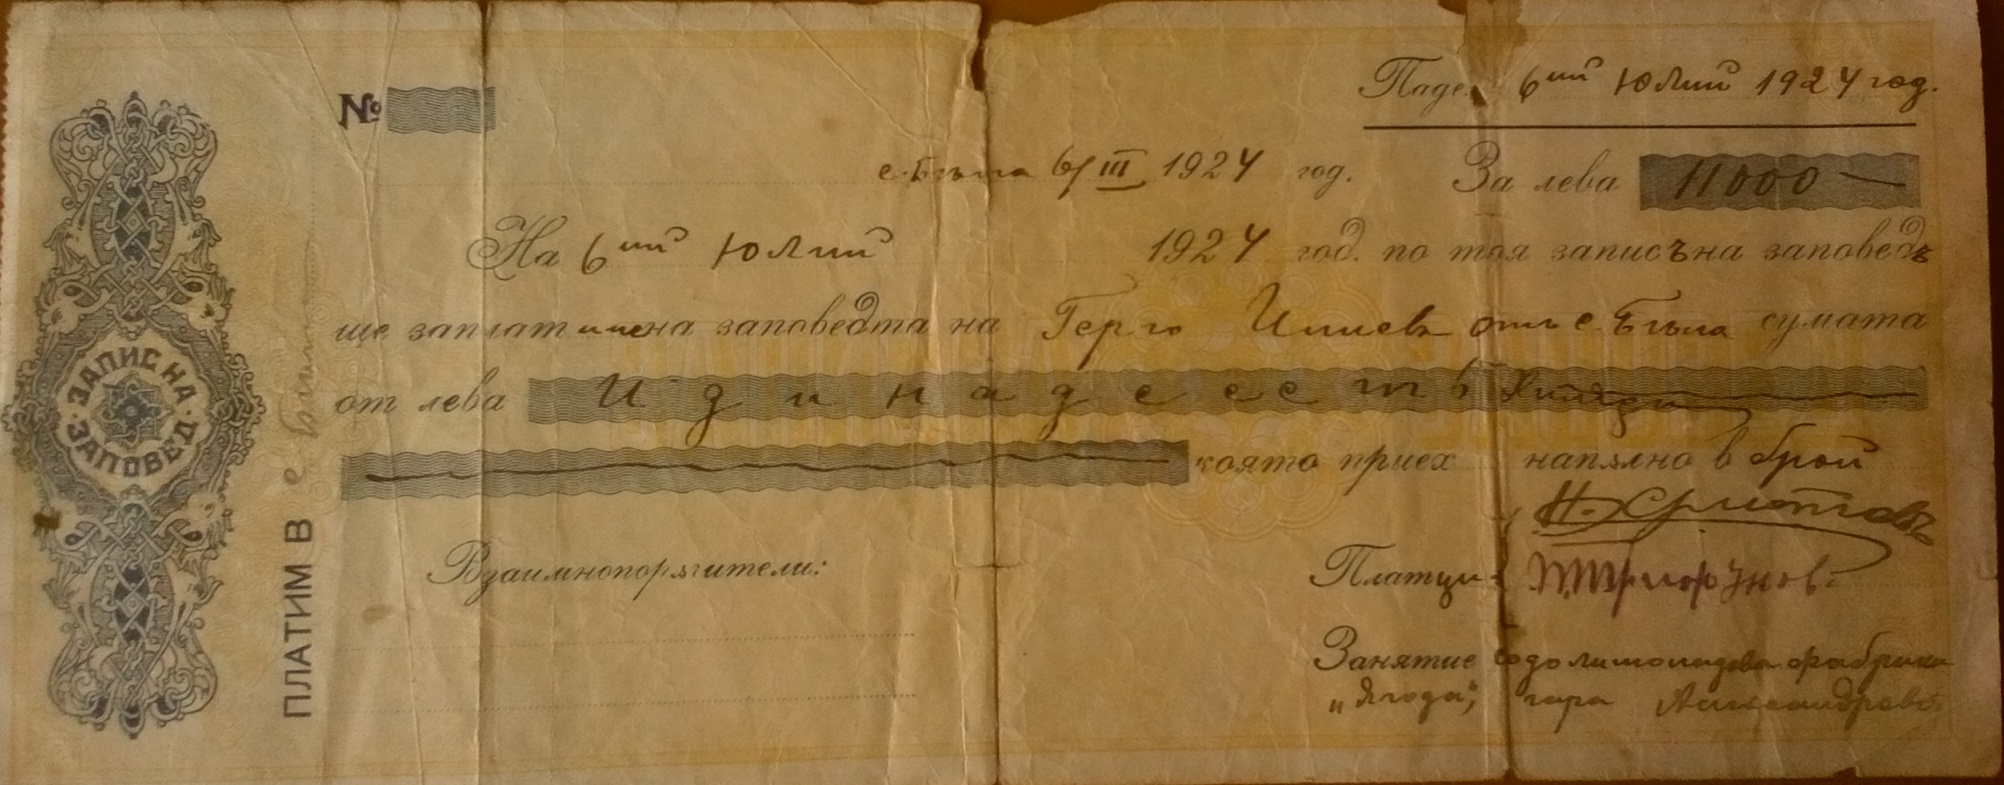 ЗАПИС НА ЗАПОВЕД
ПЛАТИМ В с.
№
Падеж 6ий Юлий 1924 год.
6/III 1924 год. За лева 11000 —
На 6ий Юлий 1924 год. по тоя записъ на заповедъ
ще заплатиме на заповедта на Герго Илиевъ отъ с. сумата
от лева Идинадеесть Хиляди
която приех напълно в брой
Н. Христовъ
Взаимнопоръчители:
Платци П. Трифонов
Занятие Содолимонадена фабрика
"Ягода", гара Александрово